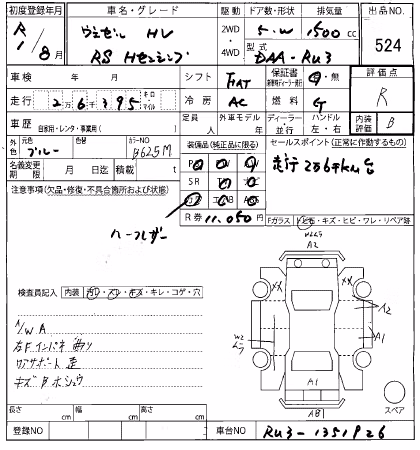 初度登録年月 車名・グレード 駆動 ドア数・形状 排気量 出品NO.
R1/8月 ヴェゼル HV 2WD・4WD 5.W 1500cc 524
RS Hセンシング 型式 DAA-RU3
車検 年 月 シフト FAT 保証書 有・無 評価点
走行 2万6千395 キロ マイル 冷房 AC 燃料 G R
車歴 自家用・レンタ・事業用( ) 定員 人 外車モデル 年 ディーラー 並行 ハンドル 左・右 内装 B
外色 元色 ブルー 色替 カラーNO B625M 装備品(純正品に限る) セールスポイント(正常に作動するもの)
名義変更期限 月 日迄 積載 t 走行2万6千km台
注意事項(欠品・修復・不具合箇所および状態) SR
ハーフレザー
R券 11,050円 Fガラス とび石・キズ・ヒビ・ワレ・リペア跡
A2
検査員記入 内装 ヨゴレ・スレ・キズ・キレ・コゲ・穴
A/W A
左Fインパネ曲り
キズ
A2
A1
W2
A1
スペア
長さ cm 幅 cm 高さ cm
登録NO 車台NO RU3-1351926